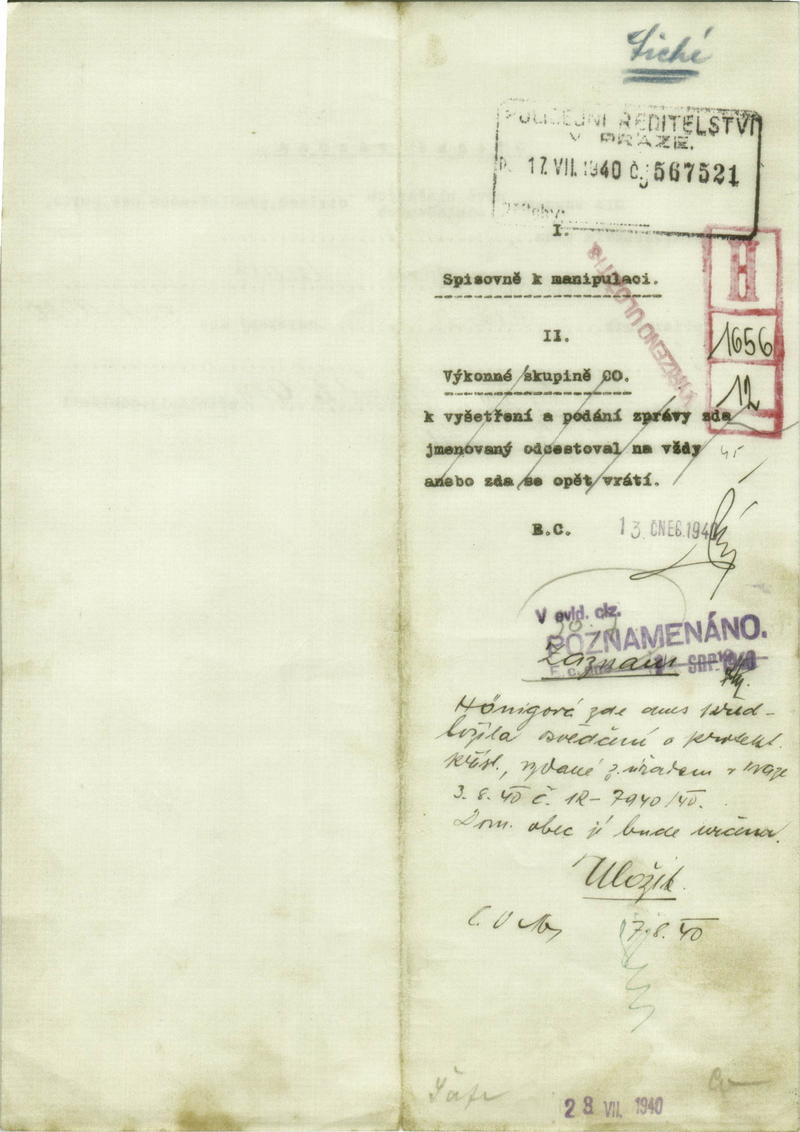 Liché
POLICEJNÍ ŘEDITELSTVÍ
V PRAZE.
17. VII. 1940 Č.j. 567521
Přílohy:
I.
H
Spisovně k manipulaci.
1656
II.
12
Výkonné skupině CO.
k vyšetření a podání zprávy zda
jmenovaný odcestoval na vždy
anebo zda se opět vrátí.
45
E.C. 13. ČNEC. 1940
V evid. ciz.
POZNAMENÁNO.
SRP. 1940
Záznam
Hönigová zde dnes před-
ložila osvědčení o protekt.
přísl., vydané z. úřadem v Praze
3.8.40 č. 12-7940/40.
Dom. obec jí bude určena.
Uložit.
7.8.40
23. VII. 1940